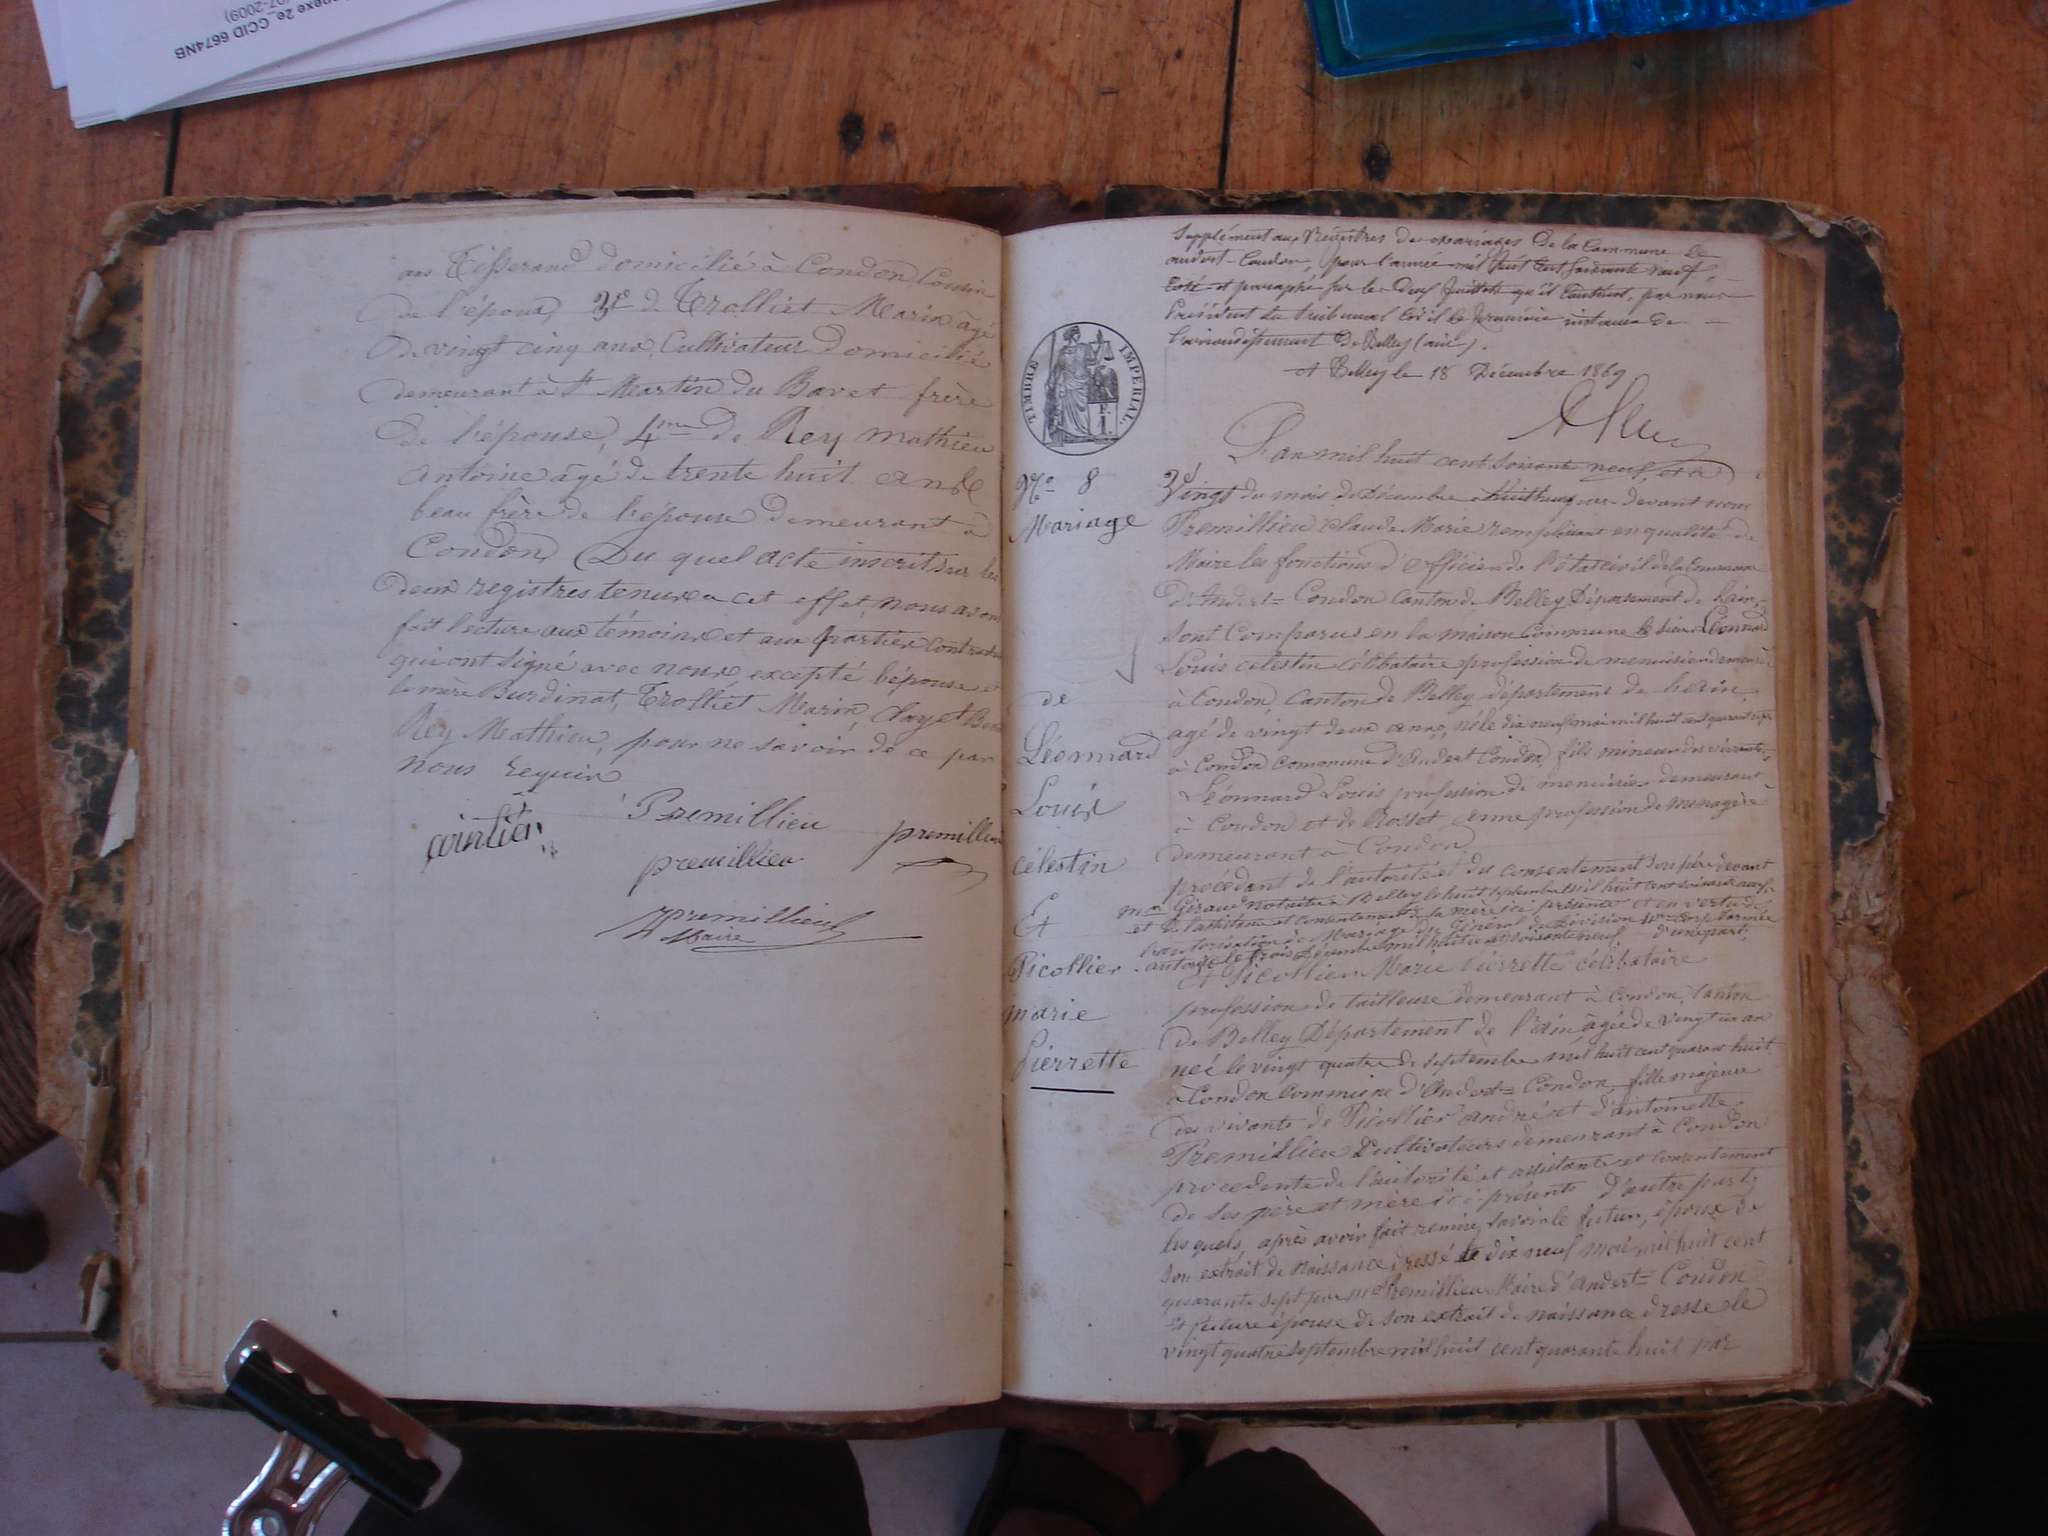 nexe 2e_CCID 6674NB
07-2009)
ans Tisserand domicilié à Condon Cousin
de l'époux, 3e de Trolliet Marin âgé
de vingt cinq ans, Cultivateur domicilié
demeurant à St Martin du Bavet frère
de l'épouse, 4me de Rey Mathieu
Antoine âgé de trente huit ans
beau frère de l'épouse demeurant à
Condon, Du quel acte inscrit sur les
deux registres tenus a cet effet, nous avons
fait lecture aux témoins et aux parties
qui ont signé avec nous excepté l'épouse et
la mère Burdinat, Trolliet Marin,
Rey Mathieu, pour ne savoir de ce par
nous requis
Premillieu
premillieu
premillieu
premillieu
Maire
Supplément aux Registres de mariages de la Commune de
andert-Condon, pour l'année mil huit cent soixante neuf,
Coté et paraphé sur les deux feuillets qu'il contient, par nous
Président du tribunal Civil de première instance de
l'arrondissement de Belley (ain).
A Belley le 18 Décembre 1869
TIMBRE IMPERIAL
No 8
Mariage
de
Léonnard
Louis
célestin
Et
Picollier
marie
Pierrette
L'an mil huit cent soixante neuf, et à
Vingt du mois de Décembre par devant nous
Premillieu Claude Marie remplissant en qualité de
Maire les fonctions d'officier de l'état civil de la Commune
d'Andert=Condon Canton de Belley Département de l'ain,
sont Comparus en la maison Commune le sieur Léonnard
Louis celestin célibataire profession de menuisier demeurt
à Condon, Canton de Belley, département de l'ain,
agé de vingt deux ans, né le dix neuf mai mil huit cent quarante sept
à Condon commune d'Andert Condon, fils mineur des vivants
Léonnard Louis profession de menuisier demeurant
à Condon et de Rosset profession de menagère
demeurant à Condon
procédant de l'autorité et du consentement son père devant
me Géraud notaire à Belley le huit septembre mil huit cent soixante neuf
et de l'assistance et consentement de sa mère ici présente et en vertu de
l'autorisation de Mariage du Général de Division 4me corps d'armée
le trois Décembre mil huit cent soixante neuf d'une part,
Et Picollier Marie Pierrette célibataire
profession de tailleuse demeurant à Condon, Canton
de Belley Département de l'ain, âgée de vingt un an
née le vingt quatre de septembre mil huit cent quarante huit
à Condon commune d'Andert=Condon, fille majeure
des vivants de Picollier andré et d'antoinette
Premillieu Cultivateurs demeurant à Condon
procedente de l'autorité et assistante et consentement
de ses père et mère ici présents d'autre part;
les quels, après avoir fait remise, savoir le futur, époux de
son extrait de naissance dressé le dix neuf mai mil huit cent
quarante sept par Mr Premillieu Maire d'Andert=Condon
et future épouse de son extrait de naissance dresse le
vingt quatre septembre mil huit cent quarante huit par